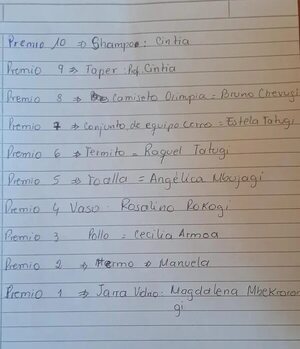 Premio 10 => Shampoo: Cintia
Premio 9 => Taper: Prof. Cintia
Premio 8 => Camiseto Olimpia = Bruno Chevugi
Premio 7 => Conjunto de equipo Cerro = Estela Tatugi
Premio 6 => Termito = Raquel Tatugi
Premio 5 => Toalla = Angélica Mbujagi
Premio 4 Vaso: Rosalino Rokogi
Premio 3 Pollo = Cecilia Armoa
Premio 2 => Termo => Manuela
Premio 1 => Jarra Vidrio: Magdalena
gi